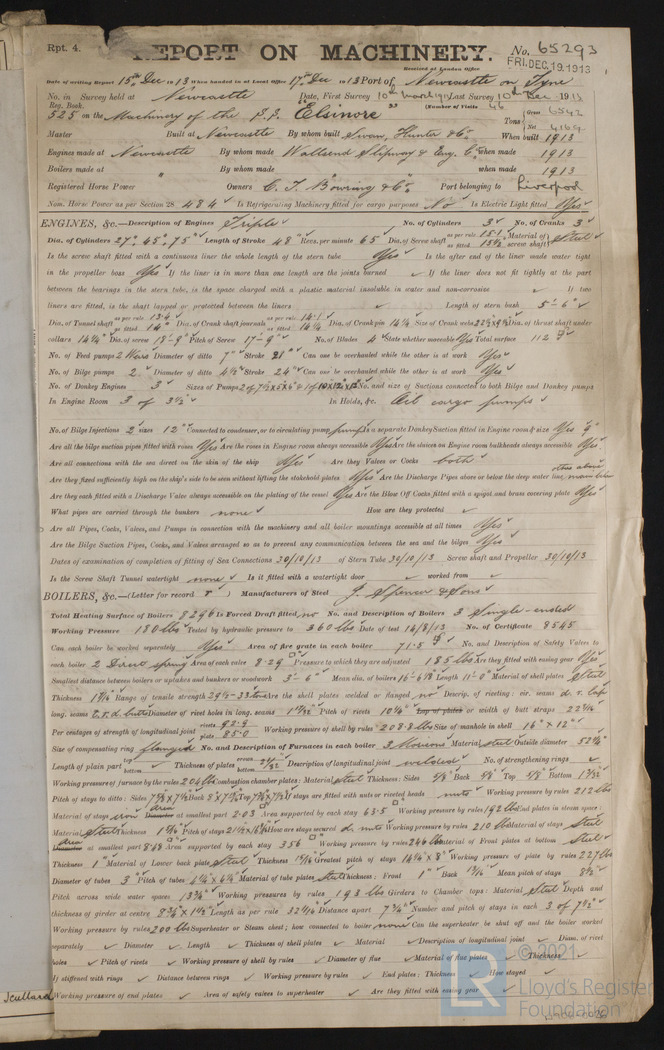 Rpt. 4.
REPORT ON MACHINERY.
No. 65293
Received at London Office
FRI. DEC. 19. 1913
Date of writing Report 15th Dec 1913 When handed in at Local Office 17th Dec 1913 Port of Newcastle on Tyne
No. in Survey held at Newcastle Date, First Survey 10th March 1913 Last Survey 10th Dec 1913
Reg. Book. (Number of Visits 46
525 on the Machinery of the S.S. "Elsinore" Tons Gross 6542 Net 4169
Master Built at Newcastle By whom built Swan, Hunter & Co. When built 1913
Engines made at Newcastle By whom made Wallsend Slipway & Eng. Co. when made 1913
Boilers made at " By whom made " when made 1913
Registered Horse Power Owners C. T. Bowring & Co. Port belonging to Liverpool
Nom. Horse Power as per Section 28 484 Is Refrigerating Machinery fitted for cargo purposes No Is Electric Light fitted Yes
ENGINES, &c.—Description of Engines Triple No. of Cylinders 3 No. of Cranks 3
Dia. of Cylinders 27", 45", 75" Length of Stroke 48" Revs. per minute 65 Dia. of Screw shaft as per rule 15.1 as fitted 15½ Material of screw shaft Steel
Is the screw shaft fitted with a continuous liner the whole length of the stern tube Yes Is the after end of the liner made water tight
in the propeller boss Yes If the liner is in more than one length are the joints burned If the liner does not fit tightly at the part
between the bearings in the stern tube, is the space charged with a plastic material insoluble in water and non-corrosive If two
liners are fitted, is the shaft lapped or protected between the liners Length of stern bush 5'-6"
Dia. of Tunnel shaft as per rule 13.4 as fitted 14" Dia. of Crank shaft journals as per rule 14.1 as fitted 14¼ Dia. of Crank pin 14¼ Size of Crank webs 22½ x 9½ Dia. of thrust shaft under
collars 14¼" Dia. of screw 18'-9" Pitch of Screw 17'-9" No. of Blades 4 State whether moveable Yes Total surface 112
No. of Feed pumps 2 Weirs Diameter of ditto 7" Stroke 21" Can one be overhauled while the other is at work Yes
No. of Bilge pumps 2 Diameter of ditto 4½" Stroke 24" Can one be overhauled while the other is at work Yes
No. of Donkey Engines 3 Sizes of Pumps No. and size of Suctions connected to both Bilge and Donkey pumps
In Engine Room 3 of 3½" In Holds, &c. Oil cargo pumps
No. of Bilge Injections 2 sizes 12" Connected to condenser, or to circulating pump pump Is a separate Donkey Suction fitted in Engine room & size Yes 9"
Are all the bilge suction pipes fitted with roses Yes Are the roses in Engine room always accessible Yes Are the sluices on Engine room bulkheads always accessible Yes
Are all connections with the sea direct on the skin of the ship Yes Are they Valves or Cocks both
Are they fixed sufficiently high on the ship's side to be seen without lifting the stokehold plates Yes Are the Discharge Pipes above or below the deep water line
Are they each fitted with a Discharge Valve always accessible on the plating of the vessel Yes Are the Blow Off Cocks fitted with a spigot and brass covering plate Yes
What pipes are carried through the bunkers none How are they protected
Are all Pipes, Cocks, Valves, and Pumps in connection with the machinery and all boiler mountings accessible at all times Yes
Are the Bilge Suction Pipes, Cocks, and Valves arranged so as to prevent any communication between the sea and the bilges Yes
Dates of examination of completion of fitting of Sea Connections 30/10/13 of Stern Tube 30/10/13 Screw shaft and Propeller 30/10/13
Is the Screw Shaft Tunnel watertight none Is it fitted with a watertight door worked from
BOILERS, &c.—(Letter for record r) Manufacturers of Steel J. Spencer & Sons
Total Heating Surface of Boilers 8296 Is Forced Draft fitted no No. and Description of Boilers 3 Single-ended
Working Pressure 180 lbs Tested by hydraulic pressure to 360 lbs Date of test 14/8/13 No. of Certificate 8545
Can each boiler be worked separately Yes Area of fire grate in each boiler 71.5 No. and Description of Safety Valves to
each boiler 2 Direct spring Area of each valve 8.29 Pressure to which they are adjusted 185 lbs Are they fitted with easing gear Yes
Smallest distance between boilers or uptakes and bunkers or woodwork 3'-6" Mean dia. of boilers Length 11'-0" Material of shell plates Steel
Thickness Range of tensile strength 29½-33 tons Are the shell plates welded or flanged no Descrip. of riveting: cir. seams d. r. lap
long. seams Diameter of rivet holes in long. seams Pitch of rivets Lap of plates or width of butt straps
Per centages of strength of longitudinal joint rivets 92.9 plate 85.0 Working pressure of shell by rules 208.8 lbs Size of manhole in shell 16" x 12"
Size of compensating ring flanged No. and Description of Furnaces in each boiler 3 Morisons Material steel Outside diameter 52¼"
Length of plain part top bottom Thickness of plates crown bottom Description of longitudinal joint welded No. of strengthening rings
Working pressure of furnace by the rules 206 lbs Combustion chamber plates: Material steel Thickness: Sides Back Top Bottom
Pitch of stays to ditto: Sides Back Top If stays are fitted with nuts or riveted heads nuts Working pressure by rules 212 lbs
Material of stays iron area Diameter at smallest part 2.03 Area supported by each stay 63.5 Working pressure by rules 192 lbs End plates in steam space:
Material steel Thickness Pitch of stays How are stays secured d. nuts Working pressure by rules 210 lbs Material of stays steel
area Diameter at smallest part 8.48 Area supported by each stay 356 Working pressure by rules 246 lbs Material of Front plates at bottom Steel
Thickness 1" Material of Lower back plate Steel Thickness Greatest pitch of stays Working pressure of plate by rules 227 lbs
Diameter of tubes 3" Pitch of tubes Material of tube plates Steel Thickness: Front 1" Back Mean pitch of stays 8½"
Pitch across wide water spaces 13¾" Working pressures by rules 193 lbs Girders to Chamber tops: Material Steel Depth and
thickness of girder at centre 8¾" x 1½" Length as per rule Distance apart 7¾" Number and pitch of stays in each 3 of 7½"
Working pressure by rules 200 lbs Superheater or Steam chest; how connected to boiler none Can the superheater be shut off and the boiler worked
separately Diameter Length Thickness of shell plates Material Description of longitudinal joint Diam. of rivet
holes Pitch of rivets Working pressure of shell by rules Diameter of flue Material of flue plates Thickness
If stiffened with rings Distance between rings Working pressure by rules End plates: Thickness How stayed
Working pressure of end plates Area of safety valves to superheater Are they fitted with easing gear
© 2021
LR
Lloyd's Register
Foundation